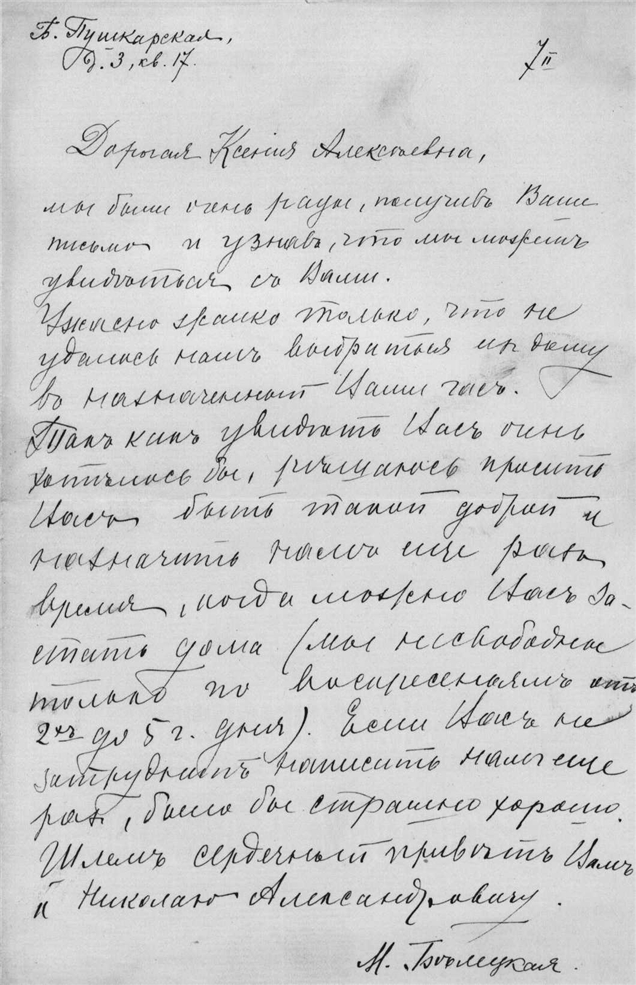 Б. Пушкарская,
д. 3, кв. 17.
7 II
Дорогая Ксенія Алексѣевна,
мы были очень рады, получивъ Ваше
письмо и узнавъ, что мы можемъ
увидѣться съ Вами.
Ужасно жалко только, что не
удалось намъ выбраться изъ дому
въ назначенный Вами часъ.
Такъ какъ увидѣть Васъ очень
хотѣлось бы, рѣшаюсь просить
Васъ быть такой доброй и
назначить намъ еще разъ
время, когда можно Васъ за-
стать дома (мы несвободны
только по воскресеньямъ отъ
2хъ до 5 г. дня). Если Васъ не
затруднитъ написать намъ еще
разъ, было бы страшно хорошо.
Шлемъ сердечный привѣтъ Вамъ
и Николаю Александровичу.
М.